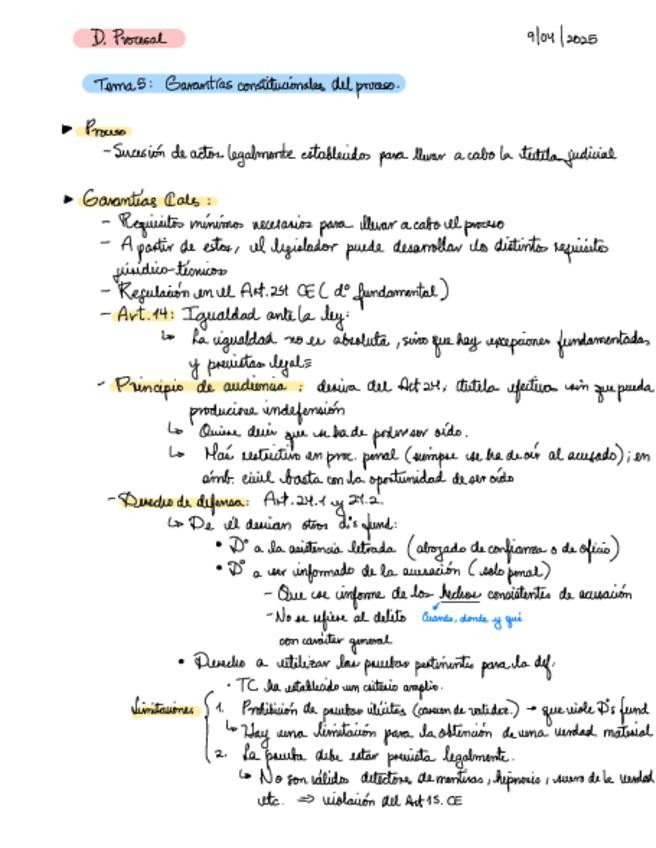 D. Procesal
9/04/2025
Tema 5: Garantías constitucionales del proceso.
► Proceso
- Sucesión de actos legalmente establecidos para llevar a cabo la tutela judicial
► Garantías Cales:
- Requisitos mínimos necesarios para llevar a cabo el proceso
- A partir de estos, el legislador puede desarrollar los distintos requisitos
jurídico-técnicos
- Regulación en el Art. CE (dº fundamental)
- Art. 14: Igualdad ante la ley:
↳ La igualdad no es absoluta, sino que hay excepciones fundamentadas
y previstas legal=
- Principio de audiencia: deriva del Art 24, tutela efectiva sin que pueda
producirse indefensión
↳ Quiere decir que se ha de poder ser oído.
↳ Más restrictivo en proc. penal (siempre se ha de oír al acusado); en
ámb. civil basta con la oportunidad de ser oído
- Derecho de defensa: Art. 24.1 y 24.2.
↳ De él derivan otros d's fund:
• Dº a la asistencia letrada (abogado de confianza o de oficio)
• Dº a ser informado de la acusación (solo penal)
- Que se informe de los hechos consistentes de acusación
- No se refiere al delito cuando, donde y qué
con carácter general
• Derecho a utilizar las pruebas pertinentes para la def.
· TC ha establecido un criterio amplio.
Limitaciones
1. Prohibición de pruebas ilícitas (carecen de validez.) → que viole D's fund
↳ Hay una limitación para la obtención de una verdad material
2. La prueba debe estar prevista legalmente.
↳ No son válidos detectores de mentiras, hipnosis, suero de la verdad
etc. ⇒ violación del Art 15. CE